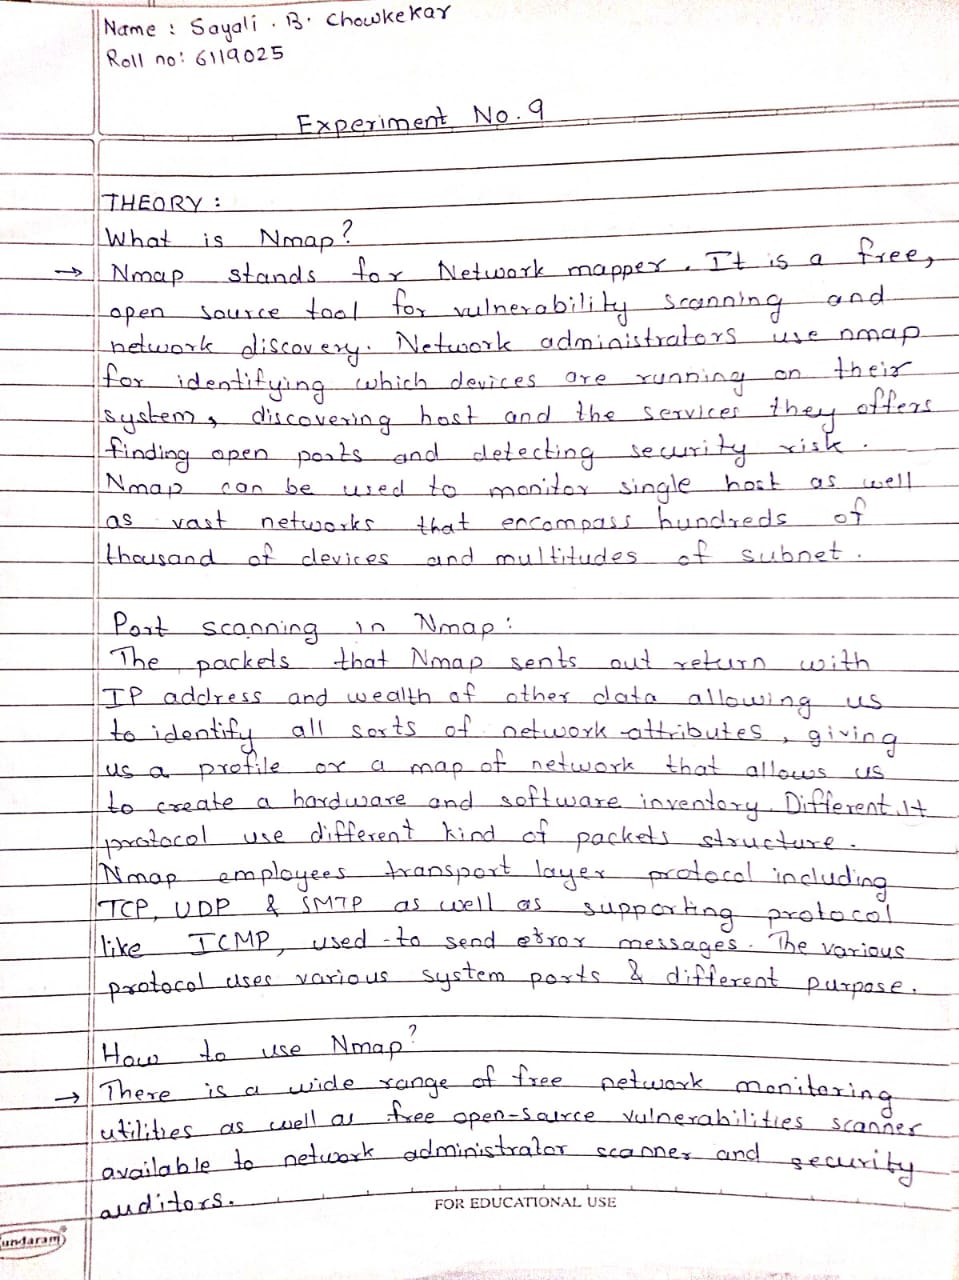 Name : Sayali . B. Chowkekar
Roll no: 6119025
Experiment No. 9
THEORY :
What is Nmap?
→ Nmap stands for Network mapper. It is a free,
open source tool for vulnerability scanning and
network discovery. Network administrators use nmap
for identifying which devices are running on their
system, discovering host and the services they offers
finding open ports and detecting security risk.
Nmap can be used to monitor single host as well
as vast networks that encompass hundreds of
thousand of devices and multitudes of subnet.
Port scanning in Nmap :
The packets that Nmap sents out return with
IP address and wealth of other data allowing us
to identify all sorts of network attributes, giving
us a profile or a map of network that allows us
to create a hardware and software inventory. Different It
protocol use different kind of packets structure.
Nmap employees transport layer protocol including
TCP, UDP & SMTP as well as supporting protocol
like ICMP, used to send error messages. The various
protocol uses various system ports & different purpose.
How to use Nmap?
→ There is a wide range of free network monitoring
utilities as well as free open-source vulnerabilities scanner
available to network administrator scanner and security
auditors.
FOR EDUCATIONAL USE
undaram